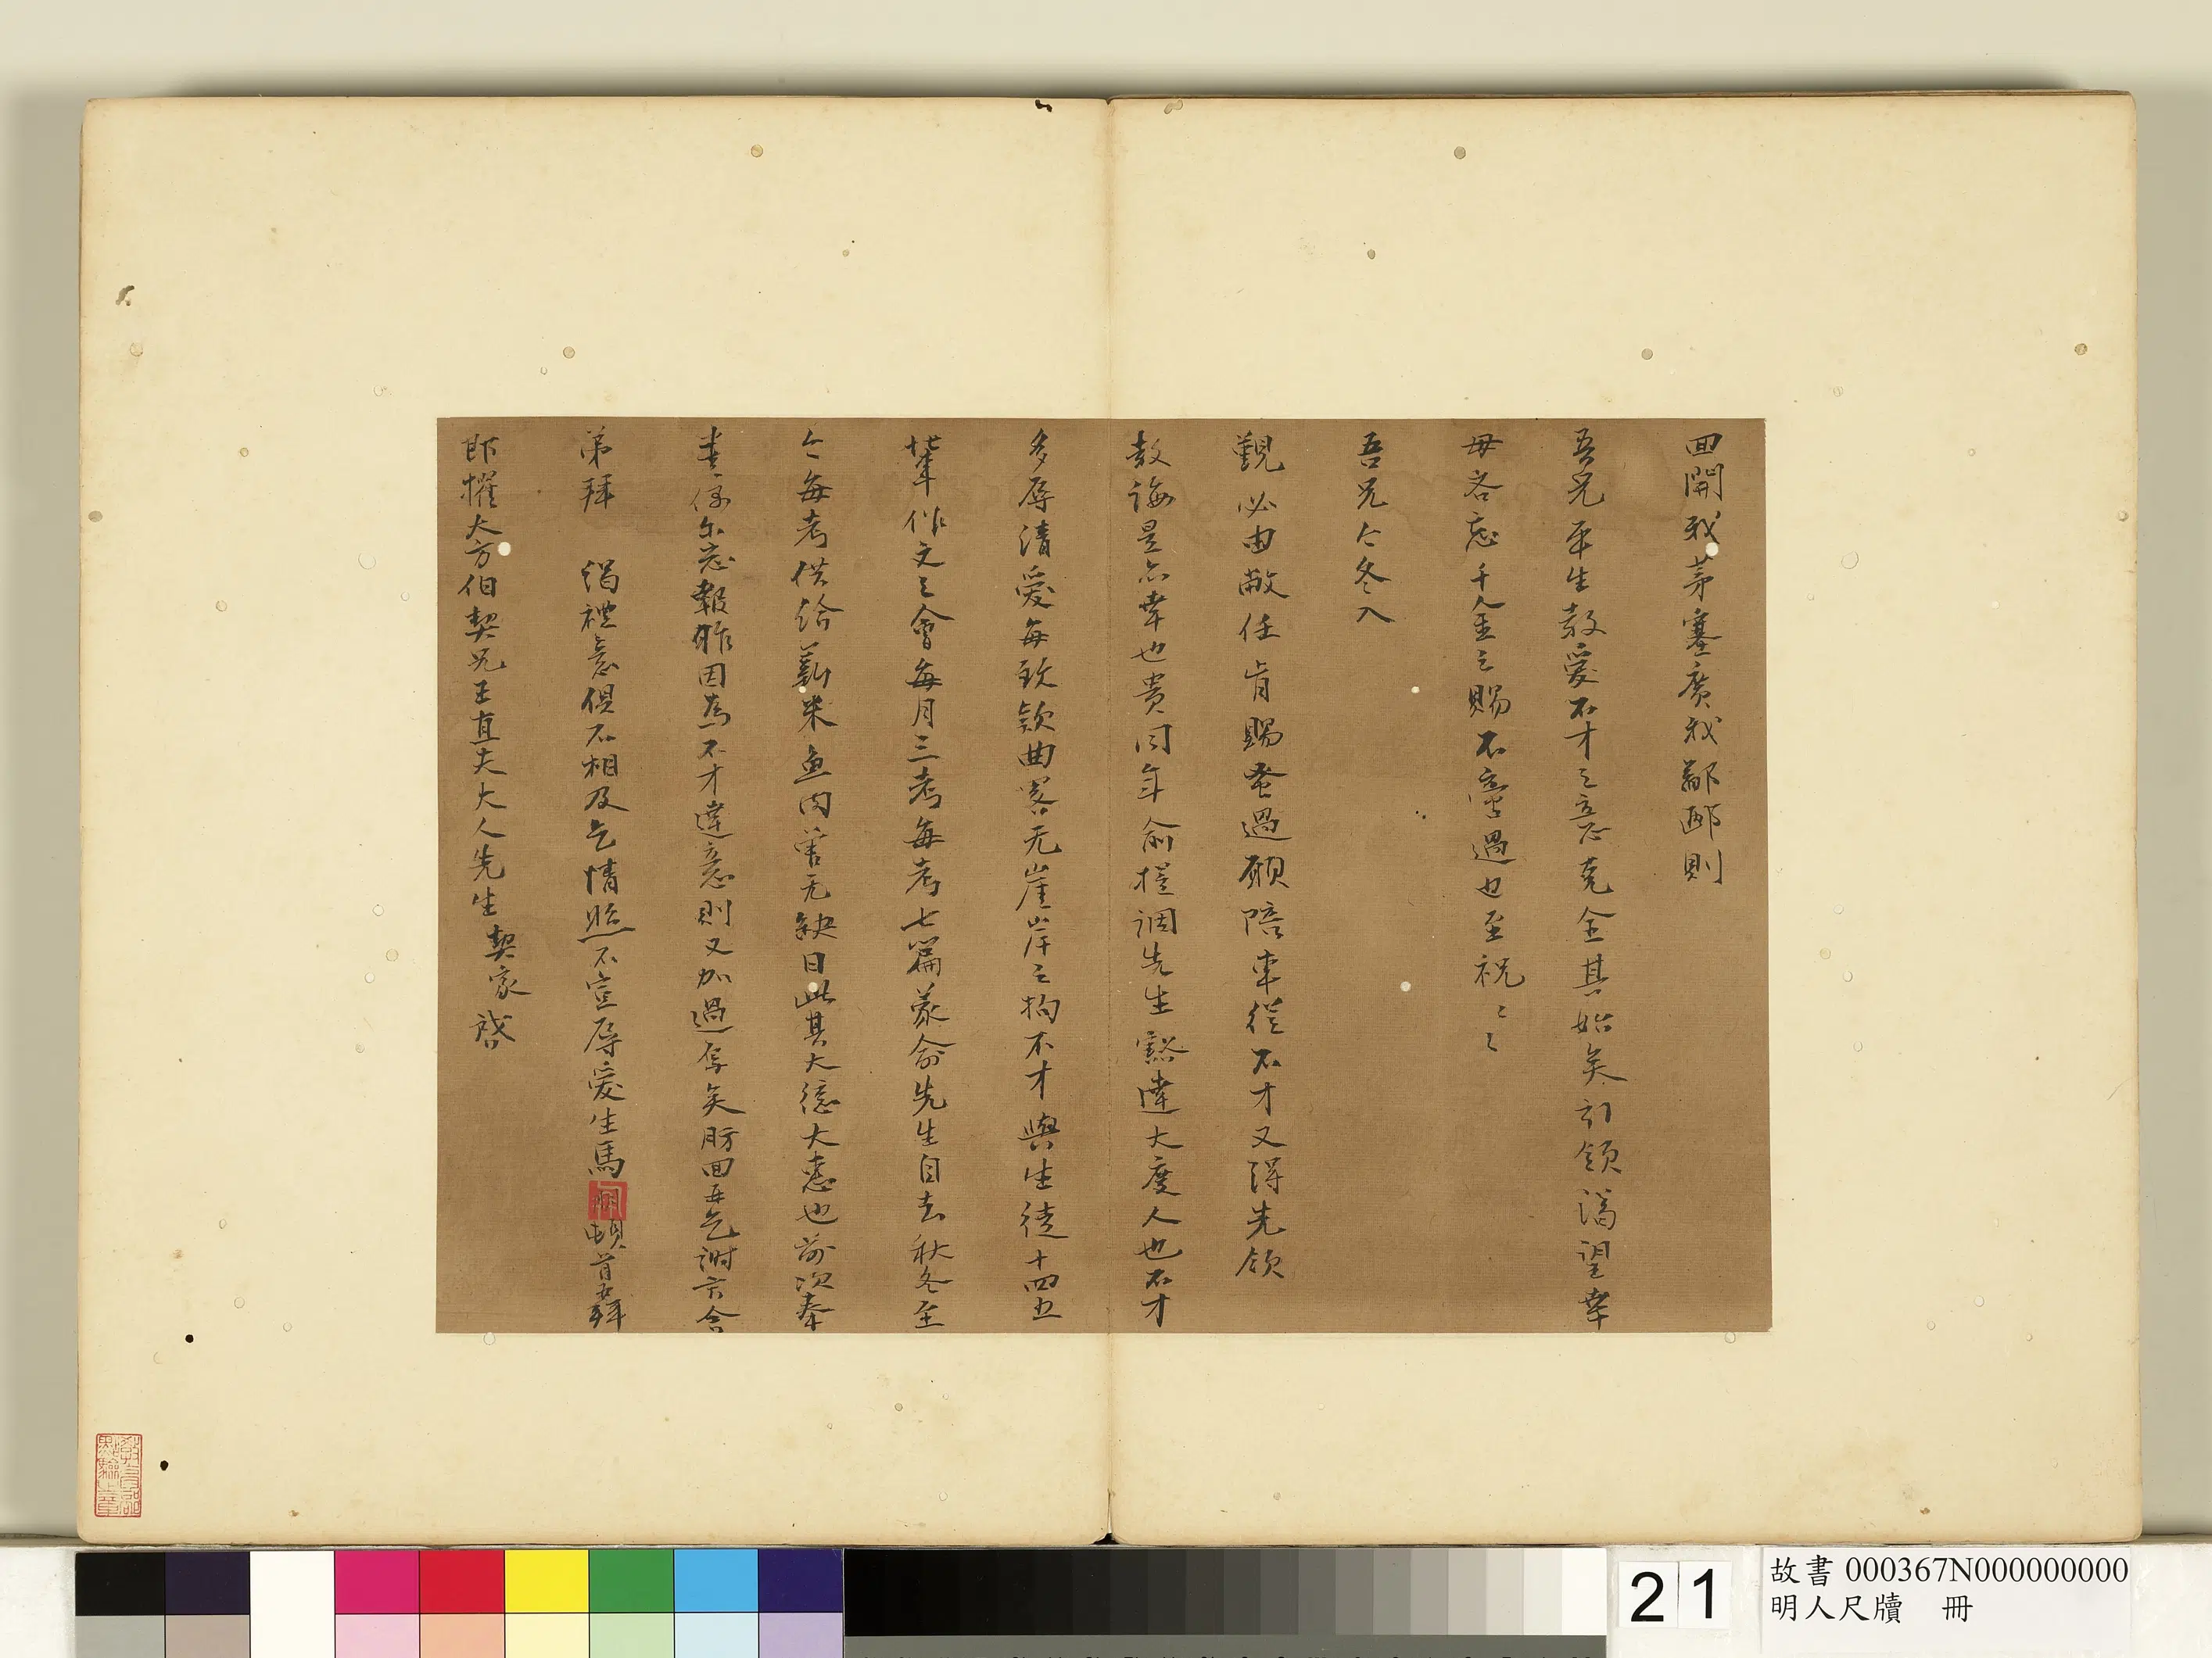 回開我茅塞廣我鄙鄙則
吾兄平生教愛不才之意克全其始矣引領溪望幸
毋吝忘千金之賜不啻過也至祝〻〻
吾兄今冬入
覲必由敝任肯賜蚤過願陪車從不才又得先領
教誨是亦幸也貴同年俞先生豁達大度人也不才
多辱清愛每欵曲畧无崖岸之拘不才與生徒十四五
輩作文之會每月三考每考七篇蒙俞先生自去秋冬至
今每考供給薪米魚肉曾无缺日此其大德大惠也前次奉
書係尔忘報雅因為不才達意則又加過厚矣肪回再乞謝言舍
弟拜 禮意俱不相及乞情照不宣辱愛生馬頓首再拜
即擢大方伯契兄王直夫大人先生 契家 啓
21
故書 000367N000000000
明人尺牘 冊